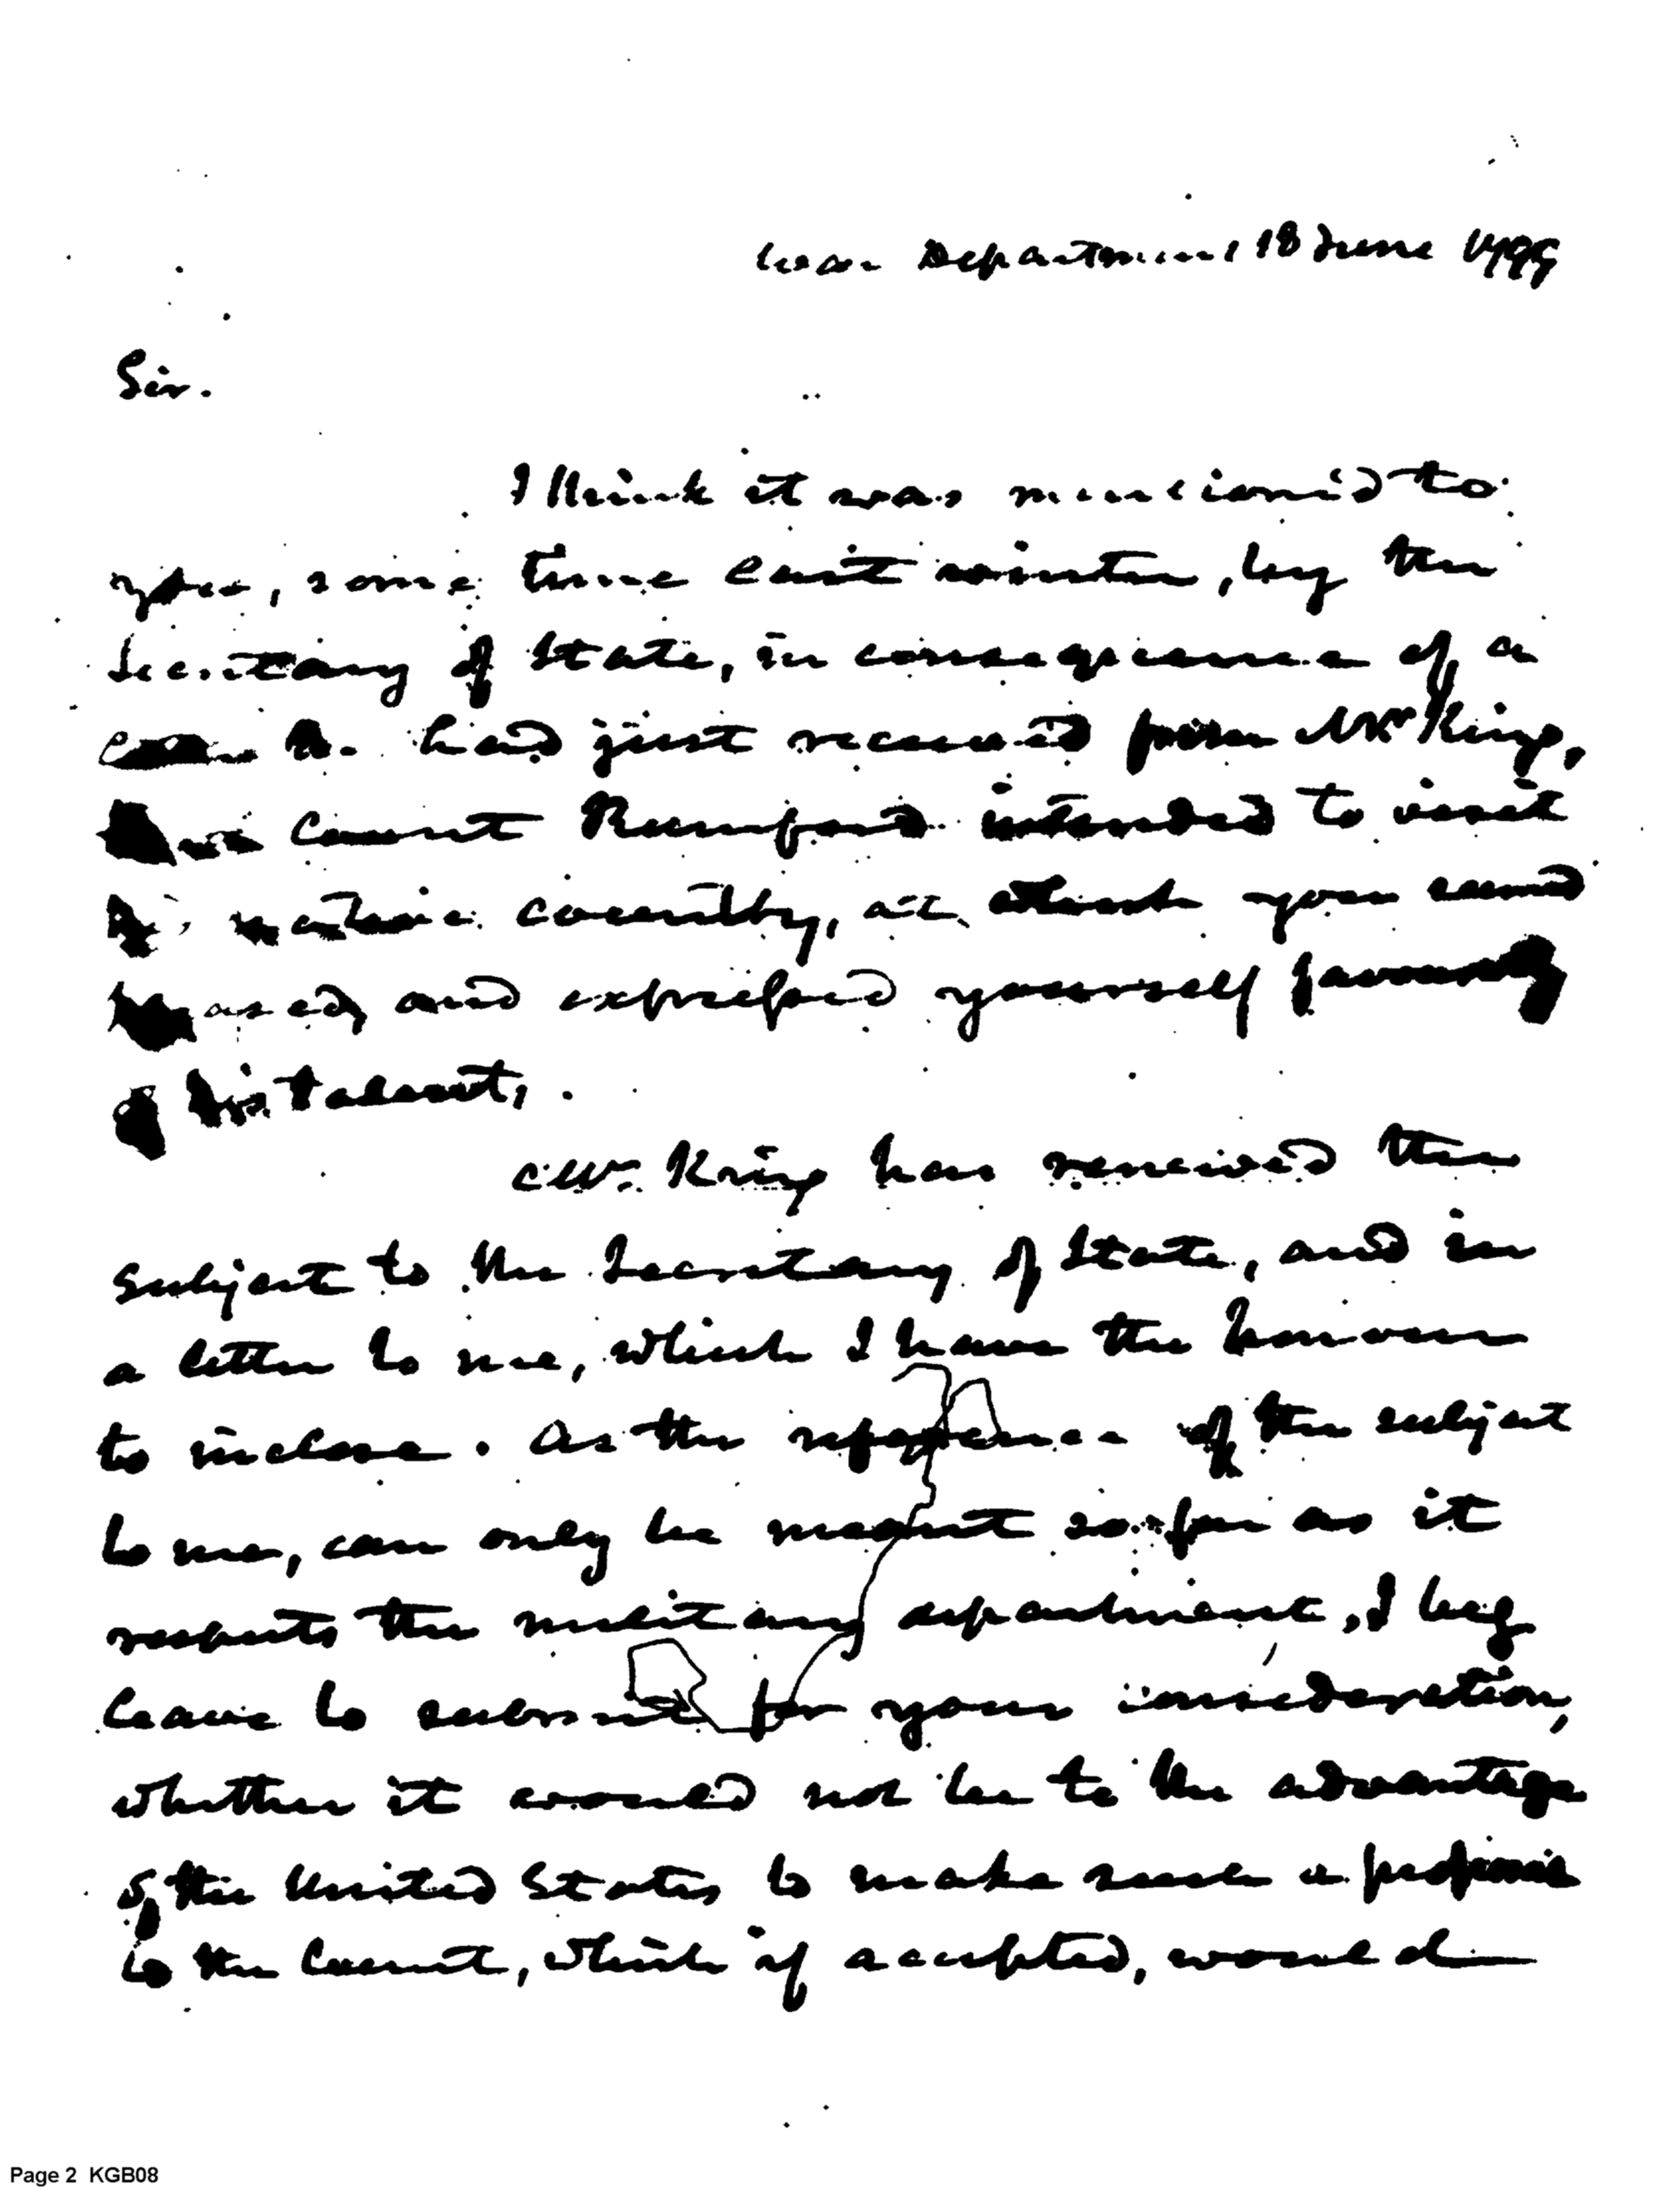 War Department 18 June 1799
Sir.
I think it was mentioned to
you, some time last winter, by the
Secretary of State, in consequence of a
he had just received from Mr King,
Count Rumford intended to visit
his native country, at which you
and expressed yourself
of his talents.
Mr. King has renewed the
subject to the Secretary of State, and in
a letter to me, which I have the honour
to inclose. As the reference of the subject
to me, can only be meant so far as it
respects the military department, I beg
leave to submit for your consideration,
whether it would not be to the advantage
of the United States to make such a
to the Count, which if accepted, would
Page 2 KGB08